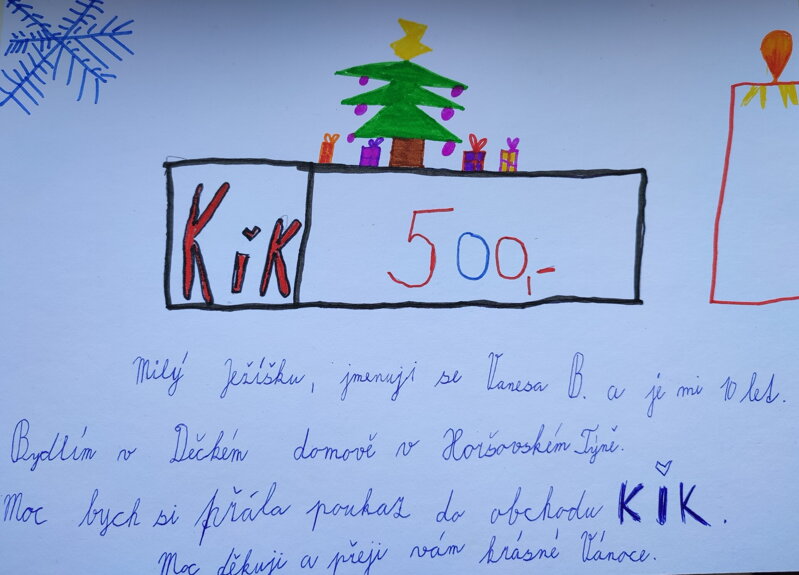 KiK 500,-
Milý Ježíšku, jmenuji se Vanesa B. a je mi 10 let.
Bydlím v Děčkém domově v Horšovském Týně.
Moc bych si přála poukaz do obchodu KiK.
Moc děkuji a přeji vám krásné Vánoce.